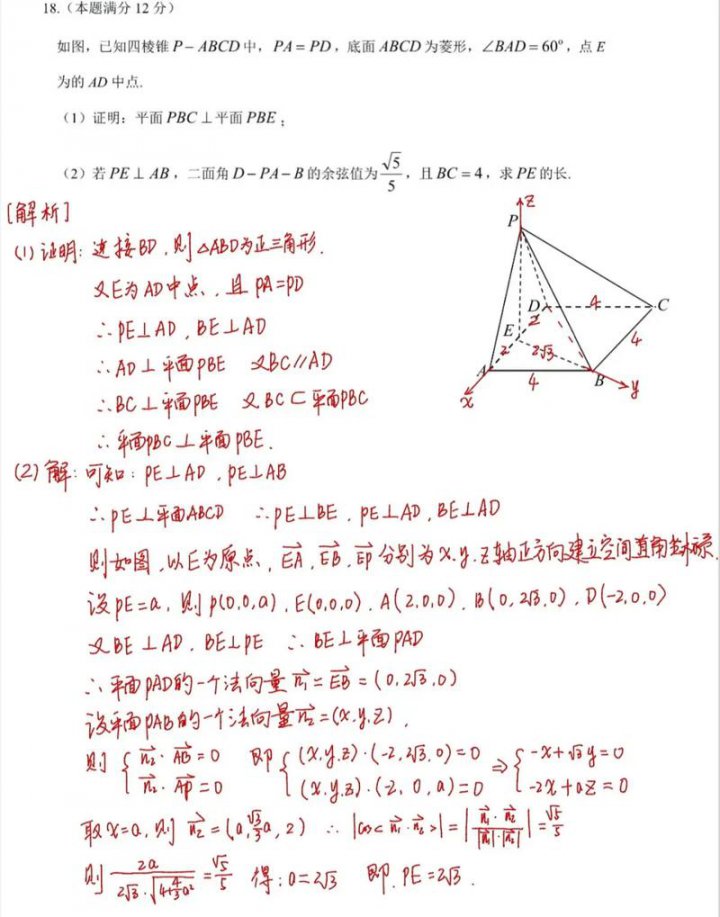 18.（本题满分 12 分）
如图，已知四棱锥 P－ABCD 中，PA＝PD，底面 ABCD 为菱形，∠BAD＝60°，点 E
为的 AD 中点.
（1）证明：平面 PBC⊥平面 PBE；
（2）若 PE⊥AB，二面角 D－PA－B 的余弦值为√5/5，且 BC＝4，求 PE 的长.
[解析]
(1) 证明：连接BD，则△ABD为正三角形.
又E为AD中点，且PA=PD
∴PE⊥AD，BE⊥AD
∴AD⊥平面PBE 又BC//AD
∴BC⊥平面PBE 又BC⊂平面PBC
∴平面PBC⊥平面PBE.
z
P
D 4 C
2
E
2 2√3 4
A 4 B
x y
(2) 解：可知：PE⊥AD，PE⊥AB
∴PE⊥平面ABCD ∴PE⊥BE，PE⊥AD，BE⊥AD
则如图，以E为原点，EA→，EB→，EP→分别为x.y.z轴正方向建立空间直角坐标系.
设PE=a，则P(0,0,a)，E(0,0,0)，A(2,0,0)，B(0,2√3,0)，D(-2,0,0)
又BE⊥AD，BE⊥PE ∴BE⊥平面PAD
∴平面PAD的一个法向量n₁→=EB→=(0,2√3,0)
设平面PAB的一个法向量n₂→=(x,y,z)，
则 { n₂→·AB→=0 n₂→·AP→=0 即 { (x,y,z)·(-2,2√3,0)=0 (x,y,z)·(-2,0,a)=0 ⇒ { -x+√3y=0 -2x+az=0
取x=a，则n₂→=(a,√3/3a,2) ∴|cos<n₁→·n₂→>|=|n₁→·n₂→/|n₁→|·|n₂→||=√5/5
则 2a/(2√3·√(4+4/3a²))=√5/5 得：a=2√3 即PE=2√3.